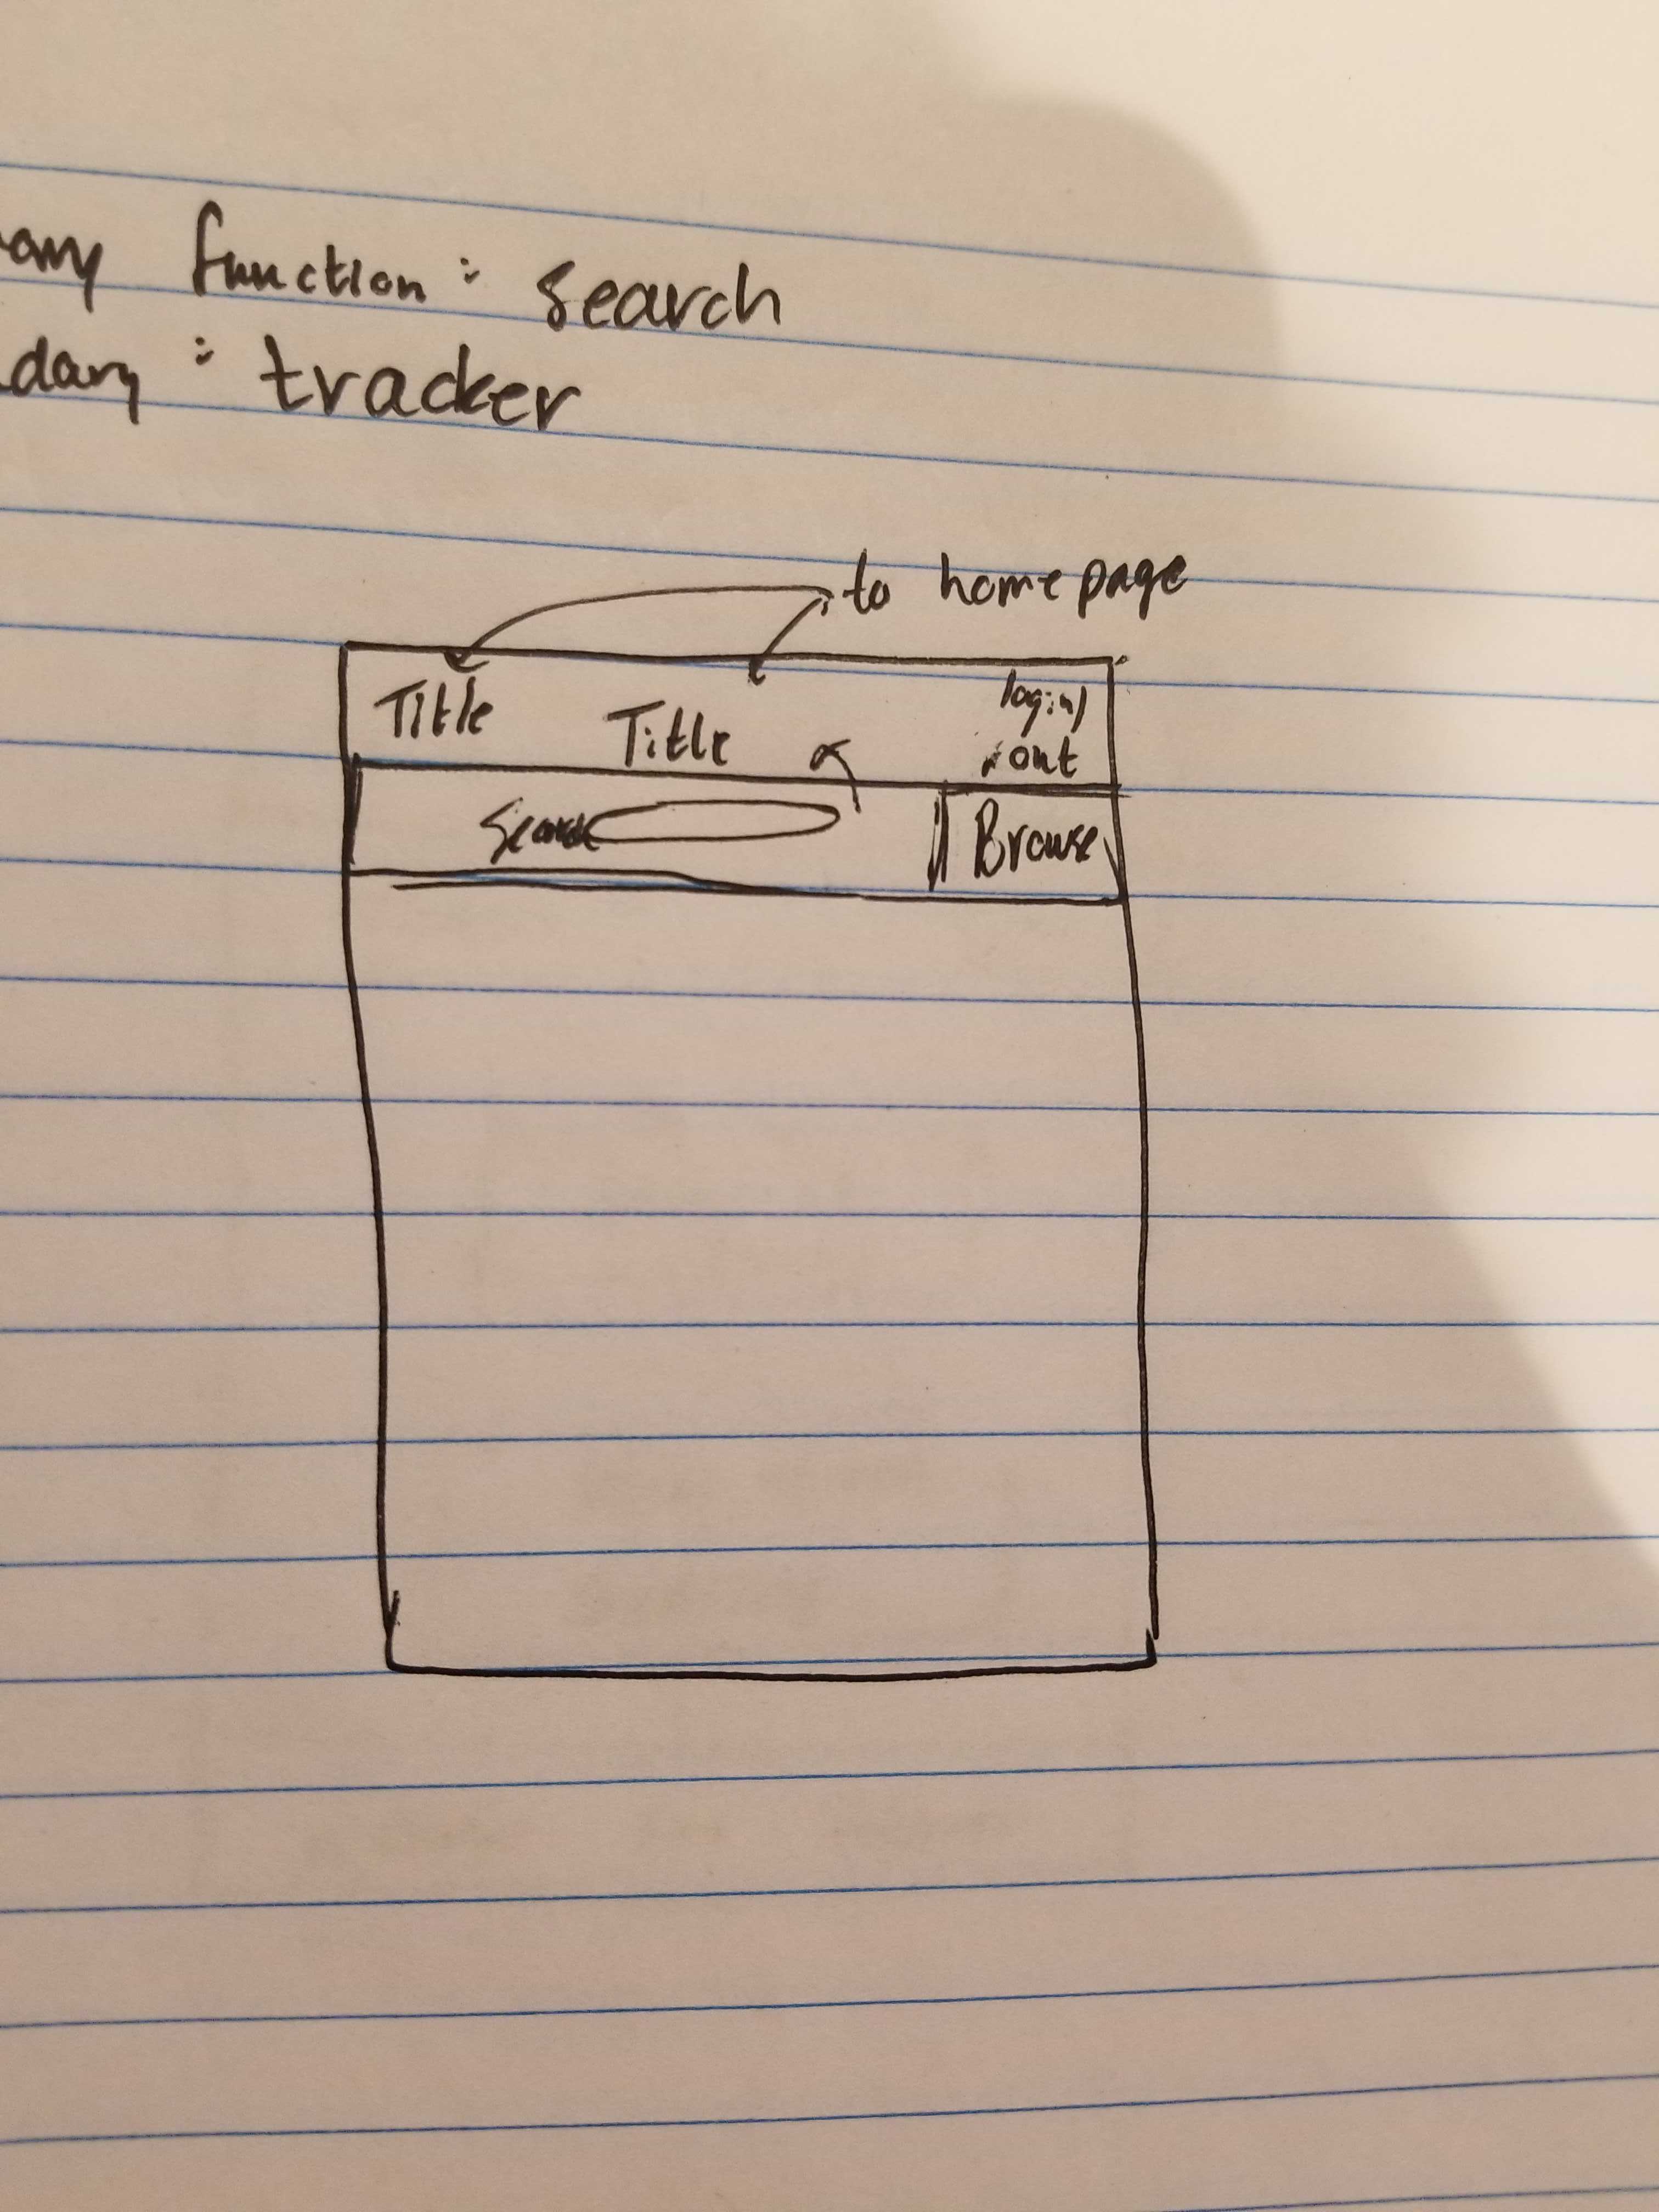 function : search
: tracker
to homepage
Title Title login/
out
Search Browse